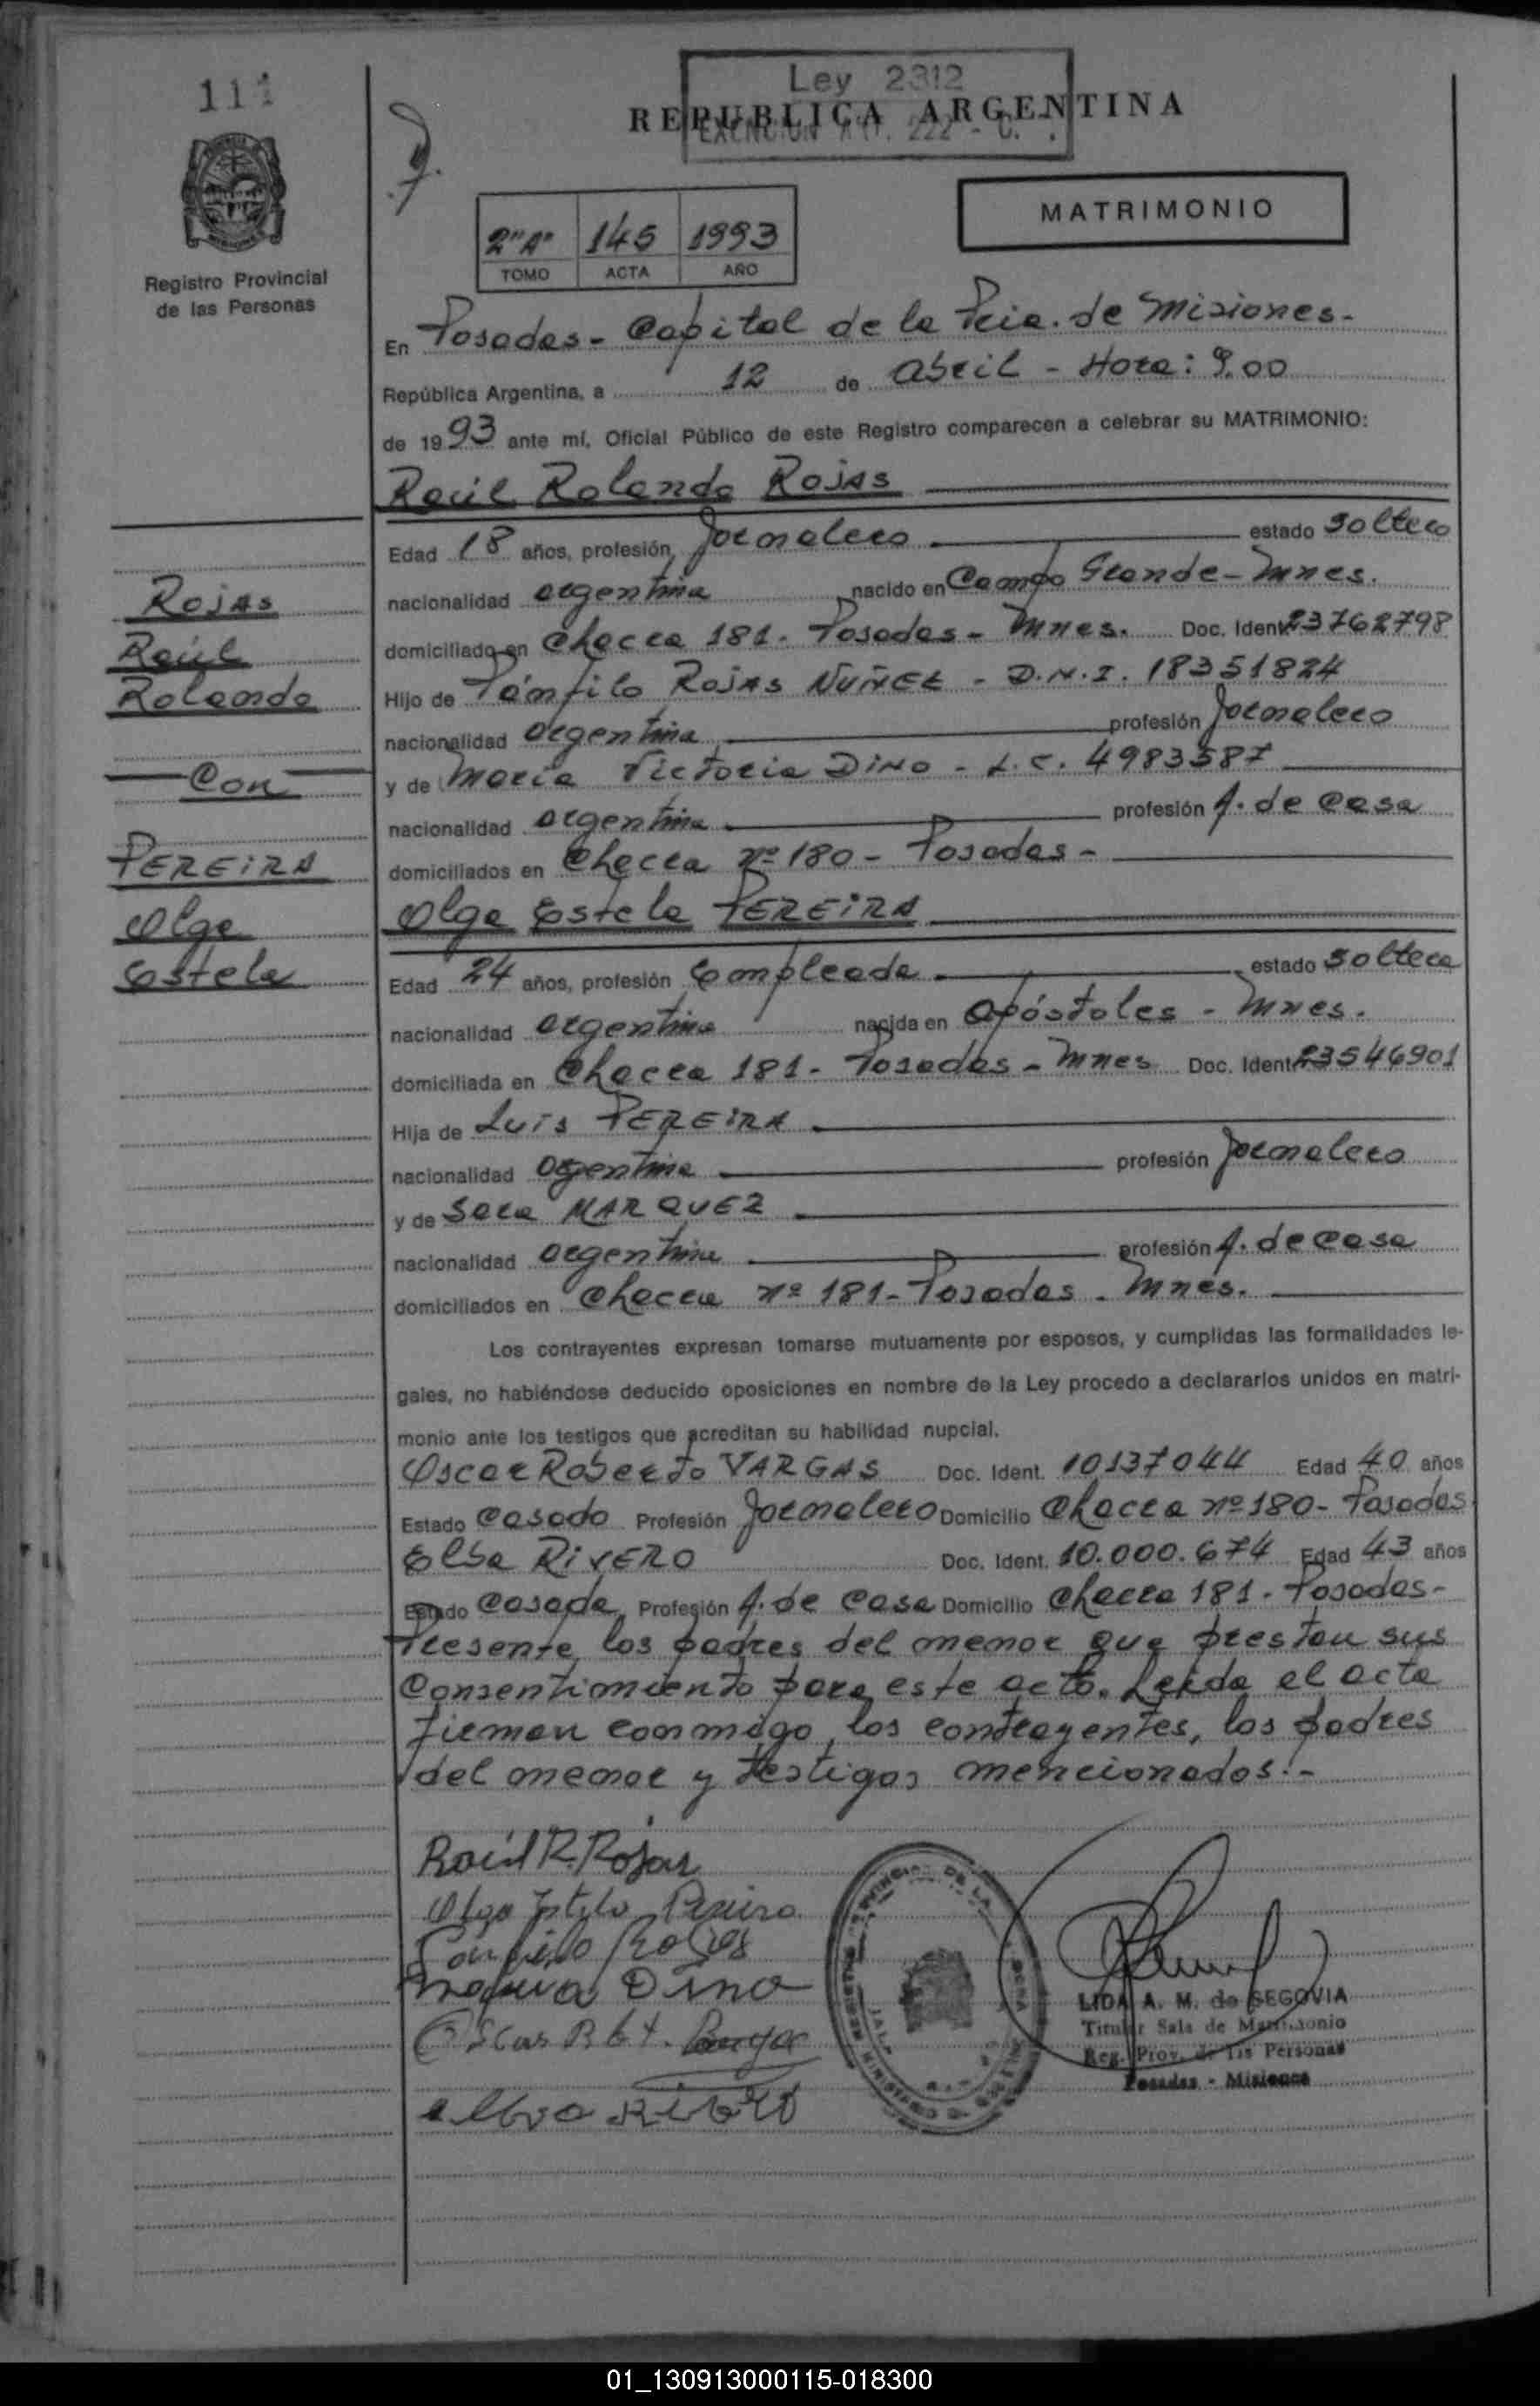 111
Ley 2312
REPUBLICA ARGENTINA
EXENCION ART. 222 - C.
MATRIMONIO
2"A" 145 1993
TOMO ACTA AÑO
Registro Provincial
de las Personas
En Posadas - Capital de la Pcia. de Misiones.-
República Argentina, a 12 de Abril - Hora: 9.00
de 1993 ante mí, Oficial Público de este Registro comparecen a celebrar su MATRIMONIO:
Raúl Rolando Rojas
Edad 18 años, profesión Jornalero estado soltero
nacionalidad argentina nacido en Campo Grande - Mnes.
domiciliado en Chacra 181 - Posadas - Mnes. Doc. Ident. 23762798
Hijo de Pánfilo Rojas NUÑEZ - D.N.I. 18351824
nacionalidad argentina profesión Jornalero
y de María Victoria DINO - L.C. 4983587
nacionalidad argentina profesión A. de Casa
domiciliados en Chacra nº 180 - Posadas -
Olga Estela PEREIRA
Edad 24 años, profesión Empleada estado soltera
nacionalidad argentina nacida en Apóstoles - Mnes.
domiciliada en Chacra 181 - Posadas - Mnes Doc. Ident. 23546901
Hija de Luis PEREIRA
nacionalidad argentina profesión Jornalero
y de Sara MARQUEZ
nacionalidad argentina profesión A. de Casa
domiciliados en Chacra nº 181 - Posadas - Mnes.
Los contrayentes expresan tomarse mutuamente por esposos, y cumplidas las formalidades le-
gales, no habiéndose deducido oposiciones en nombre de la Ley procedo a declararlos unidos en matri-
monio ante los testigos que acreditan su habilidad nupcial.
Oscar Roberto VARGAS Doc. Ident. 10137044 Edad 40 años
Estado Casado Profesión Jornalero Domicilio Chacra nº 180 - Posadas
Elba RIVERO Doc. Ident. 10.000.674 Edad 43 años
Estado Casada Profesión A. de Casa Domicilio Chacra 181 - Posadas -
Presente los padres del menor que prestan sus
Consentimiento para este acto. Leída el acta
firman conmigo, los contrayentes, los padres
del menor y testigos mencionados.-
Rojas
Raúl
Rolando
Con
PEREIRA
Olga
Estela
Raúl R. Rojas
Olga Estela Pereira
Rojas
Dino
Oscar
LIDA A. M. de SEGOVIA
Titular Sala de Matrimonio
Reg. Prov. de las Personas
Posadas - Misiones
01_130913000115-018300